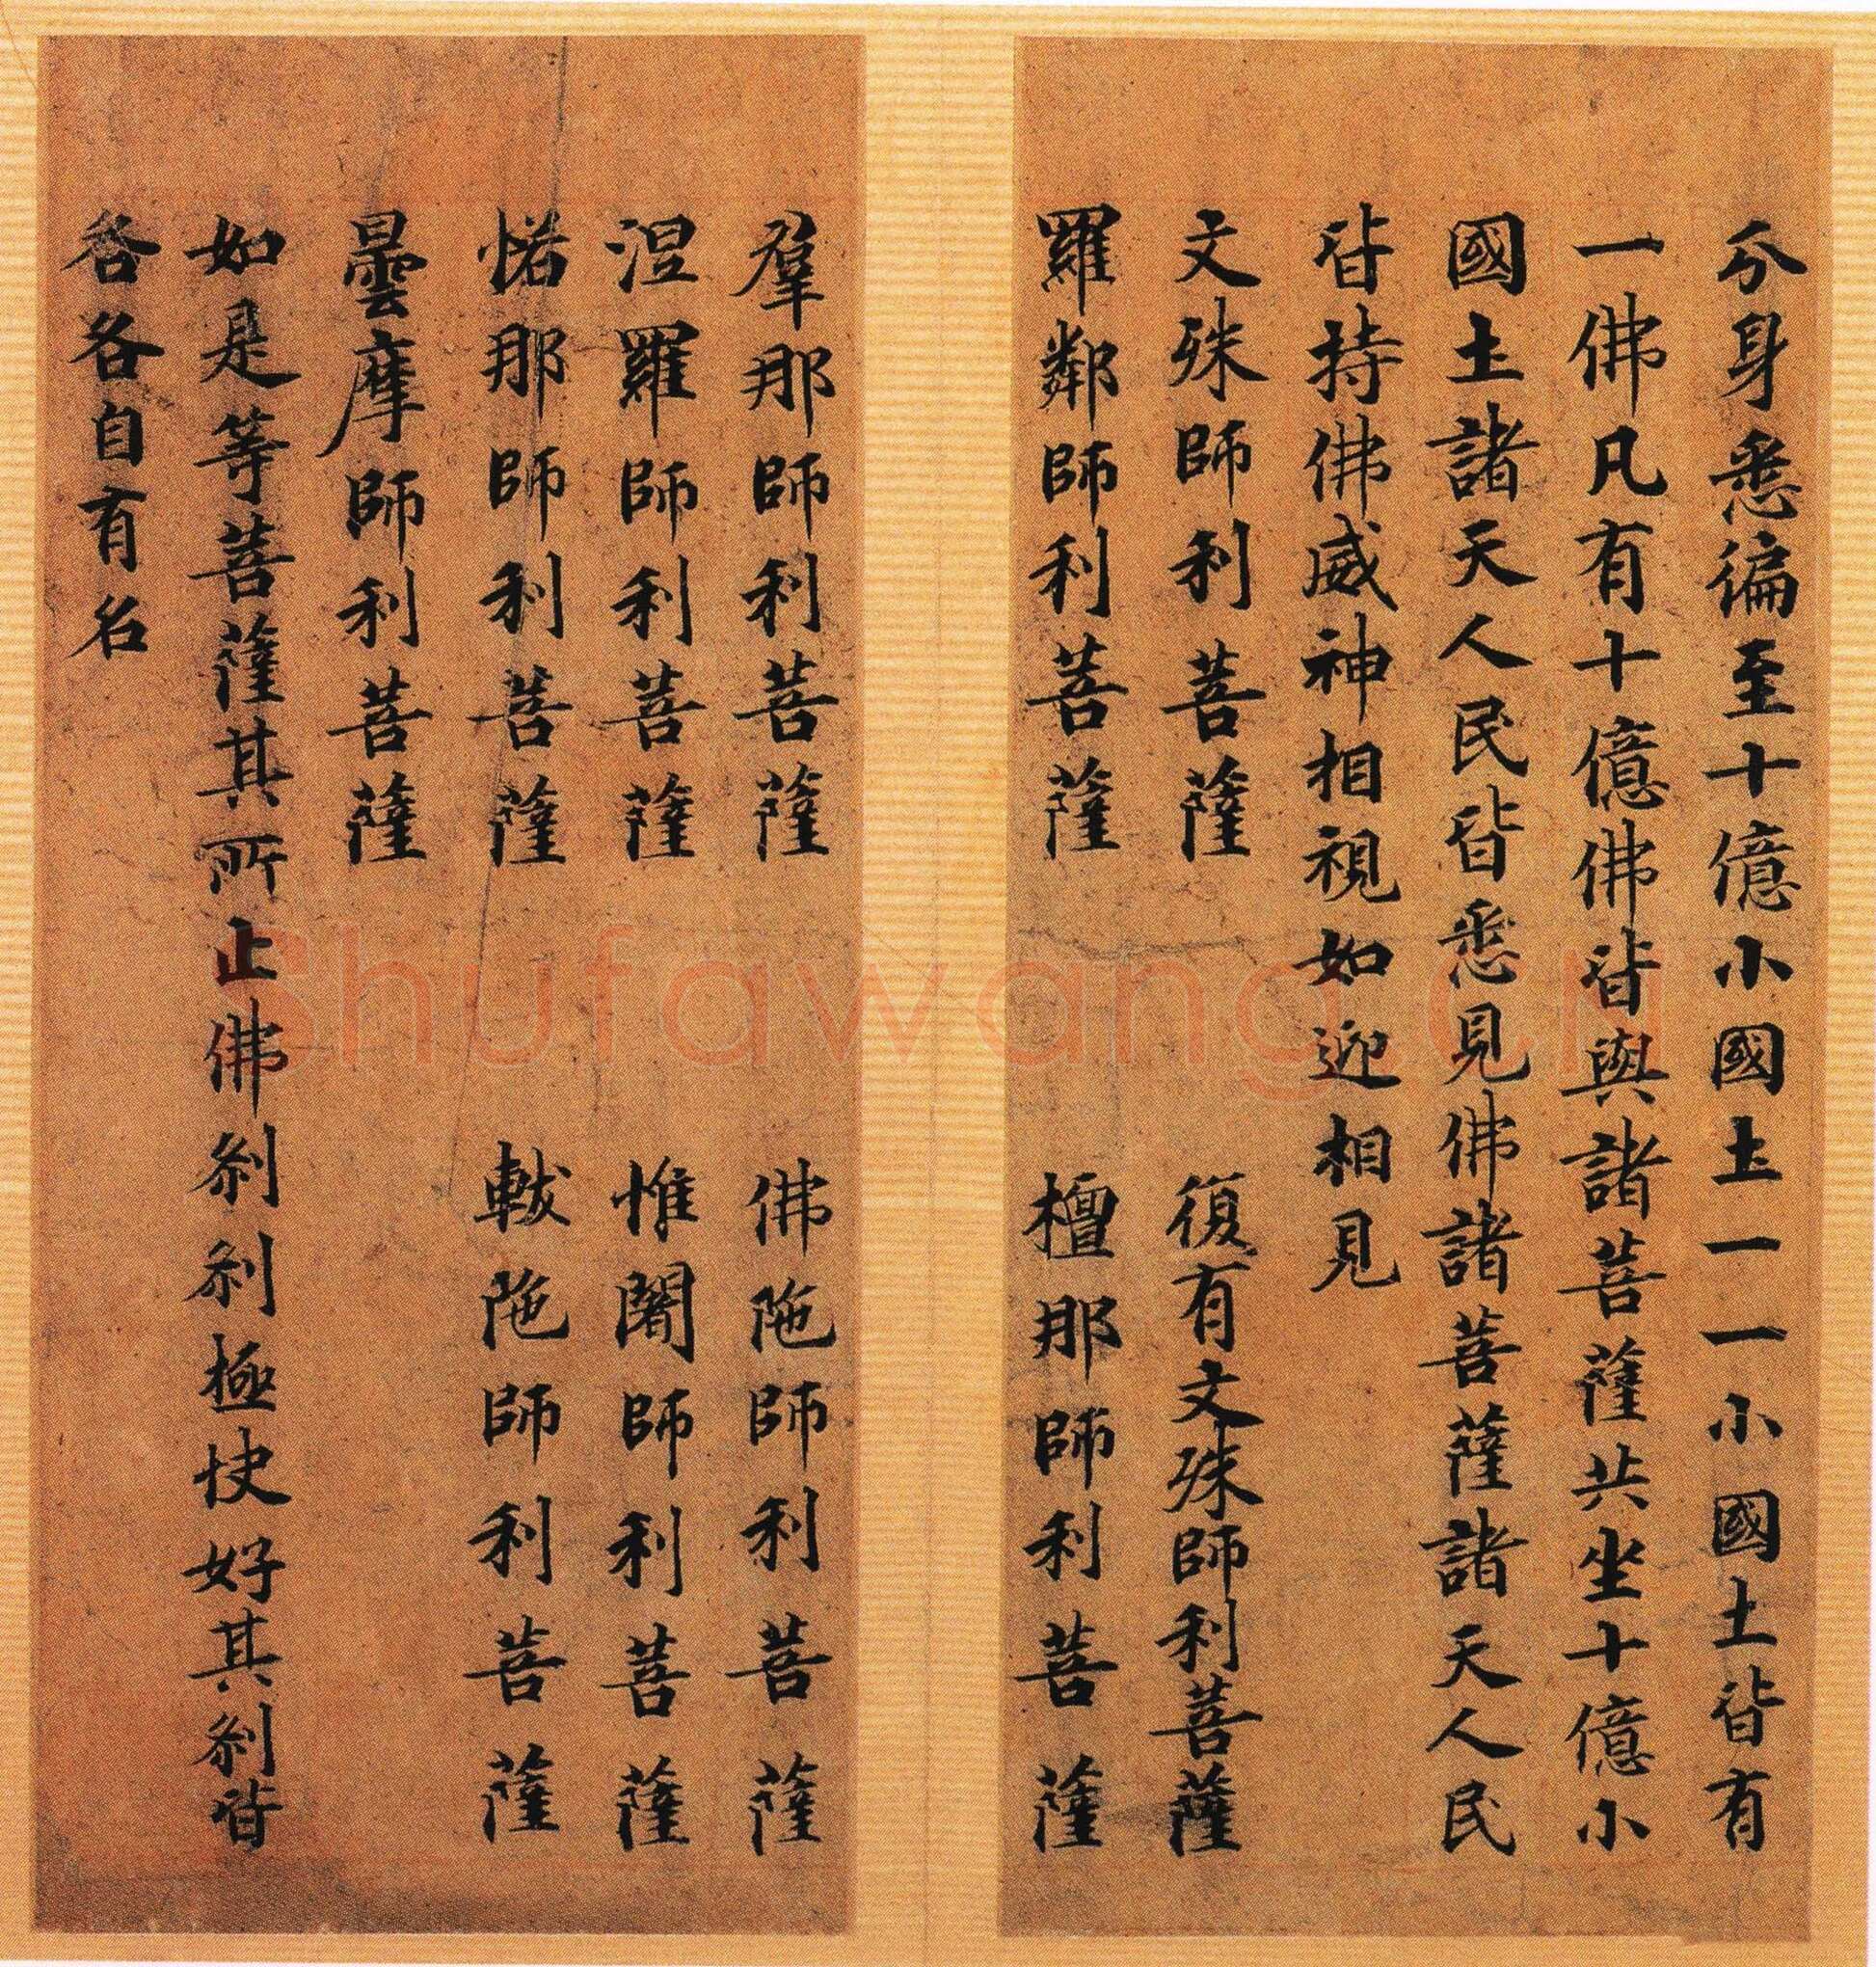 分身悉徧至十億小國土一一小國土皆有
一佛凡有十億佛皆與諸菩薩共坐十億小
國土諸天人民皆悉見佛諸菩薩諸天人民
皆持佛威神相視如迎相見
文殊師利菩薩　復有文殊師利菩薩
羅鄰師利菩薩　檀那師利菩薩
羣那師利菩薩　佛陁師利菩薩
涅羅師利菩薩　惟闍師利菩薩
惹那師利菩薩　軷陁師利菩薩
曇摩師利菩薩
如是等菩薩其所止佛剎剎極快好其剎皆
各各自有名
Shufawang.cn